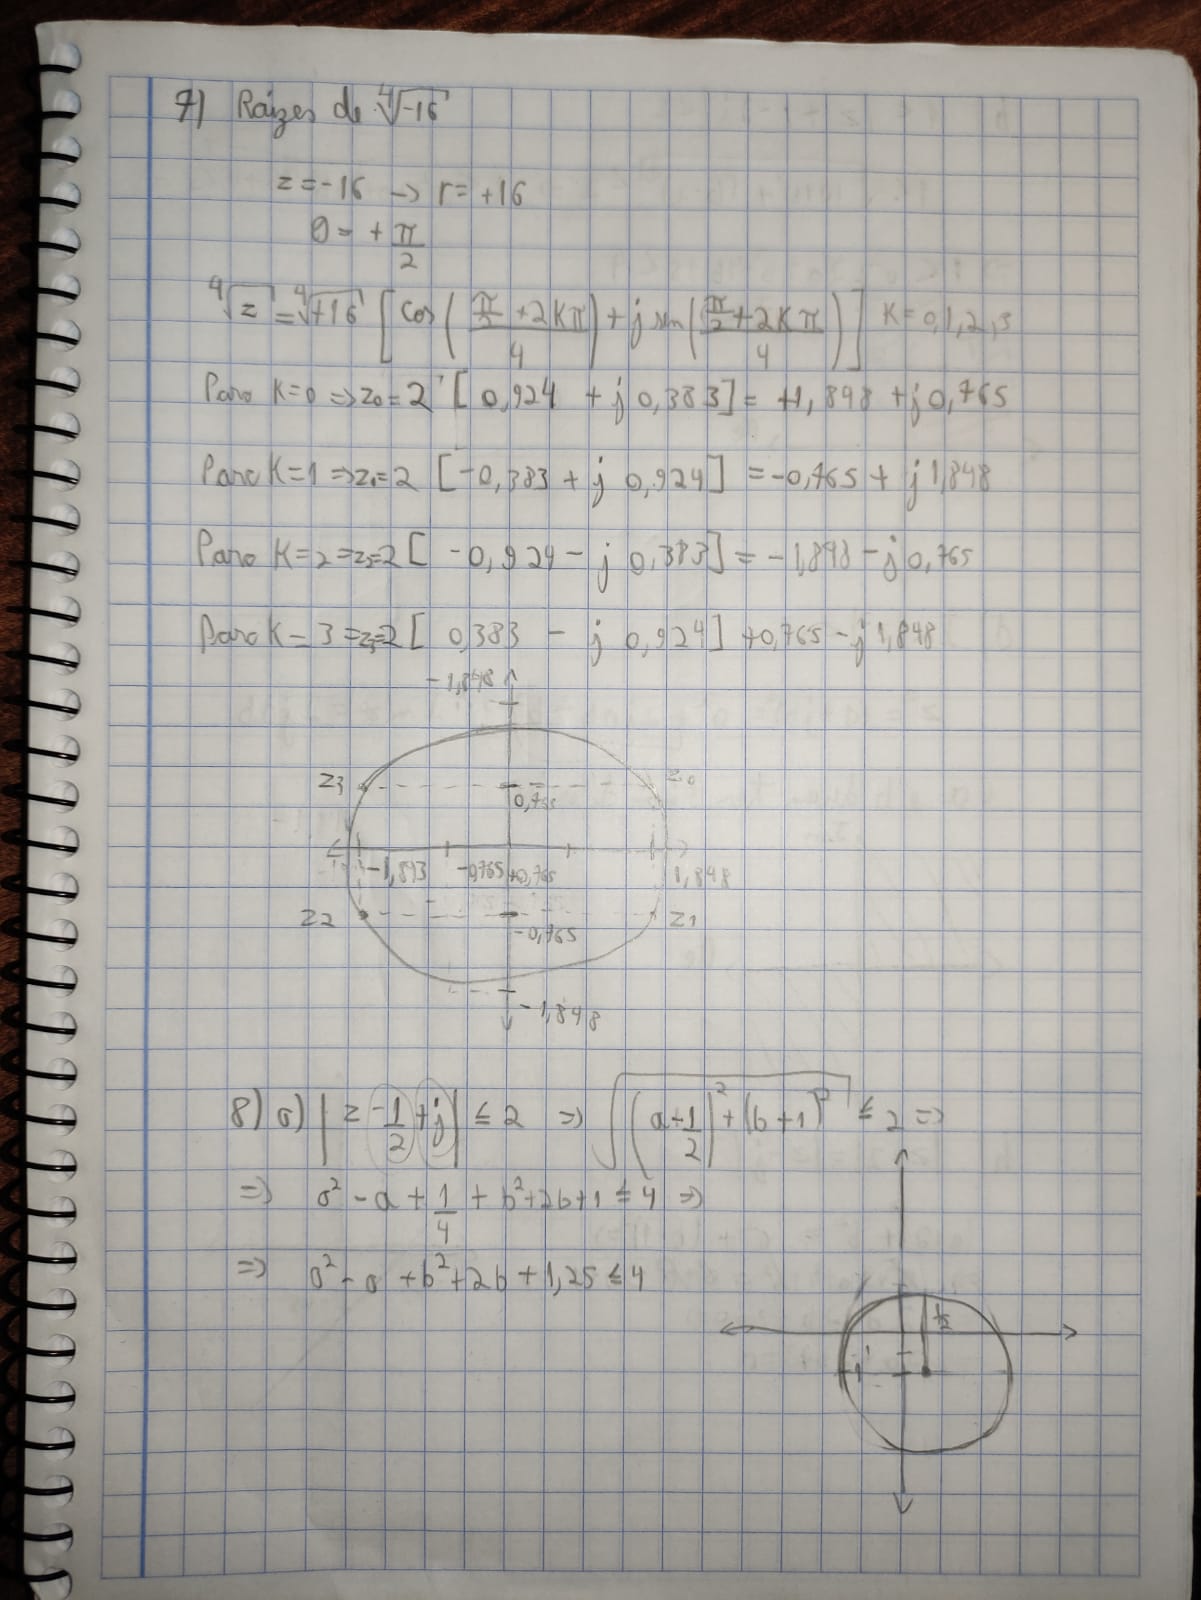 7) Raizes de ∜-16
z = -16 → r = +16
θ = + π/2
∜z = ∜+16 [cos((π/2 + 2Kπ)/4) + j sen((π/2 + 2Kπ)/4)] K=0,1,2,3
Para K=0 ⇒ z0 = 2 [0,924 + j 0,383] = +1,848 + j 0,765
Para K=1 ⇒ z1 = 2 [-0,383 + j 0,924] = -0,765 + j 1,848
Para K=2 ⇒ z2 = 2 [-0,924 - j 0,383] = -1,848 - j 0,765
Para K=3 ⇒ z3 = 2 [0,383 - j 0,924] +0,765 - j 1,848
-1,848
z3 z0
0,765
-1,843 -0,765 +0,765 1,848
z2 z1
-0,765
-1,848
8) a) |z - 1/2 + j| ≤ 2 ⇒ √((a-1/2)² + (b+1)²) ≤ 2 ⇒
⇒ a² - a + 1/4 + b² + 2b + 1 ≤ 4 ⇒
⇒ a² - a + b² + 2b + 1,25 ≤ 4
1/2